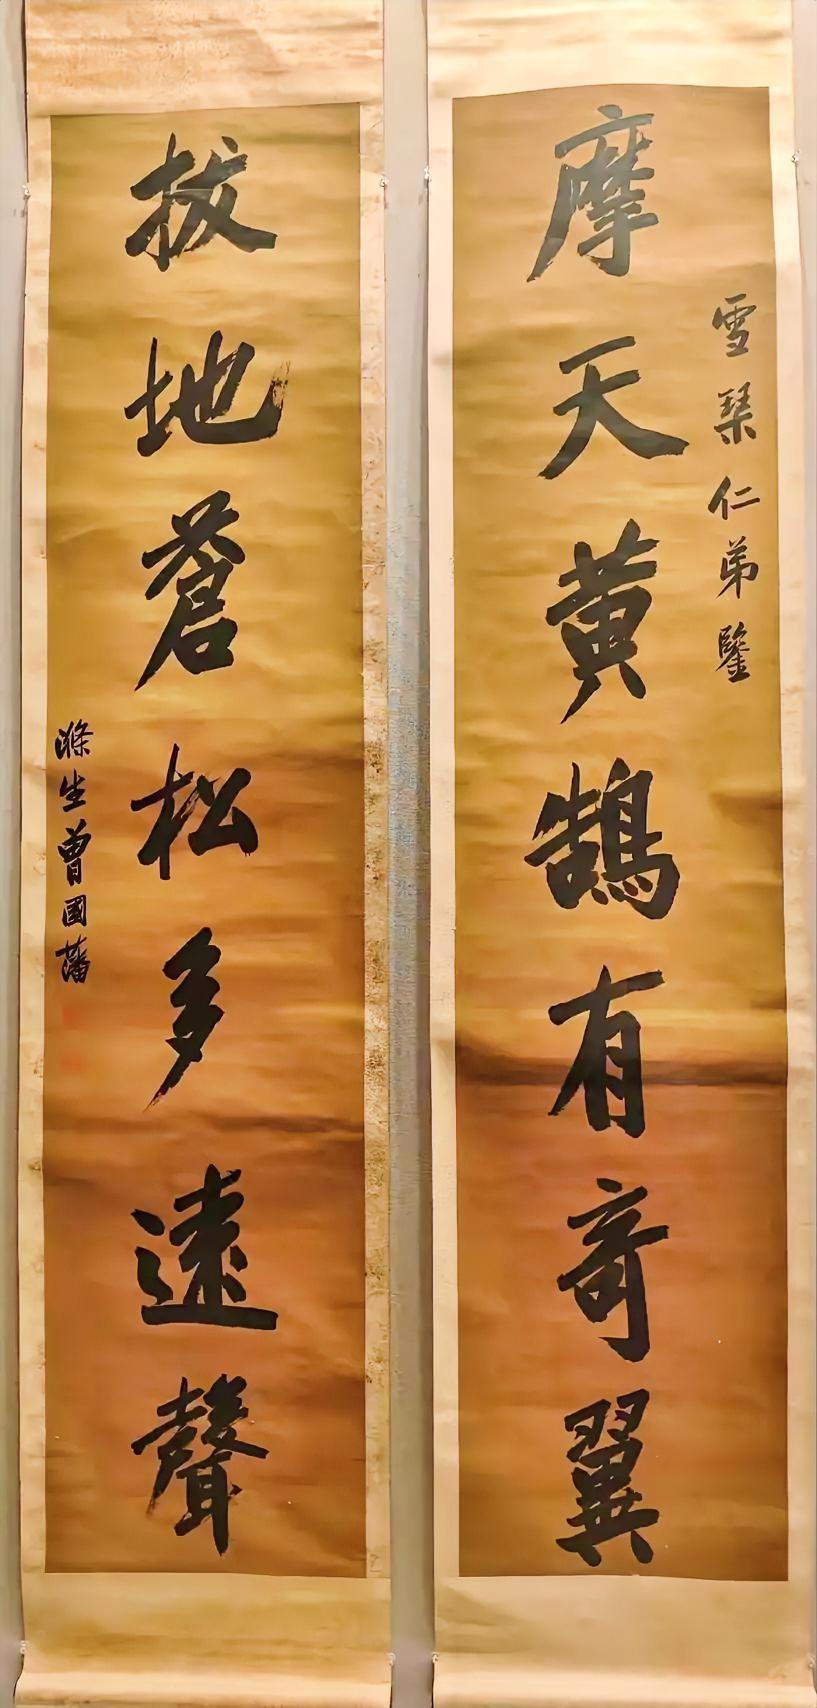 雪琴仁弟鑒
摩天黄鵠有奇翼
拔地蒼松多遠聲
滌生曾國藩